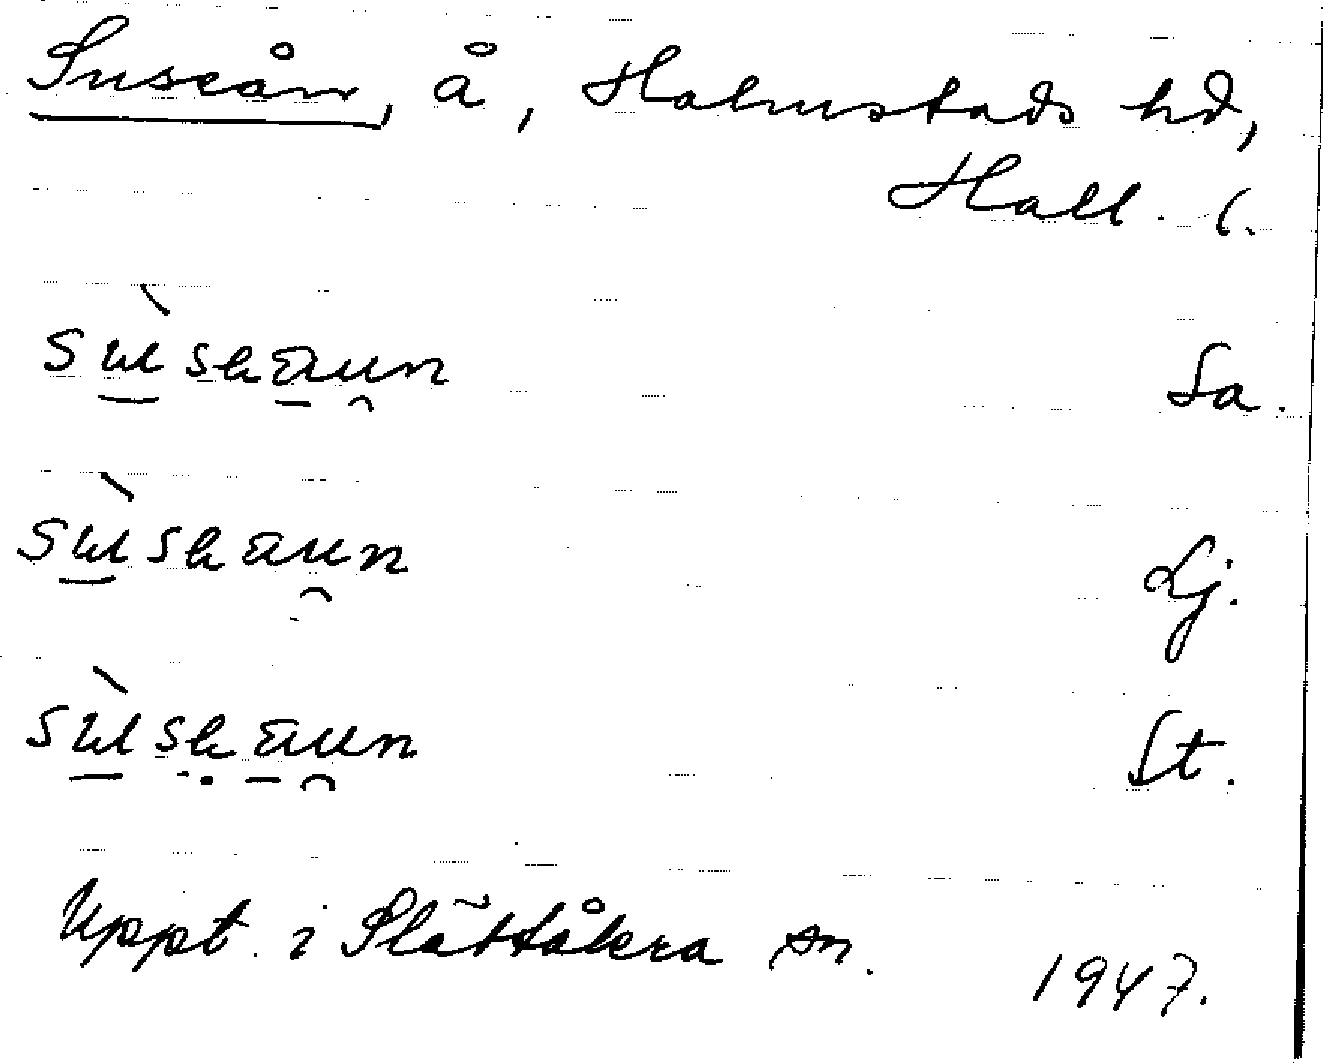 Suseån, å, Halmstads hd,
Hall. l.
sùseaun Sa.
sùseaun Lj.
sùseaun St.
Uppt. i Slättåkra sn. 1947.